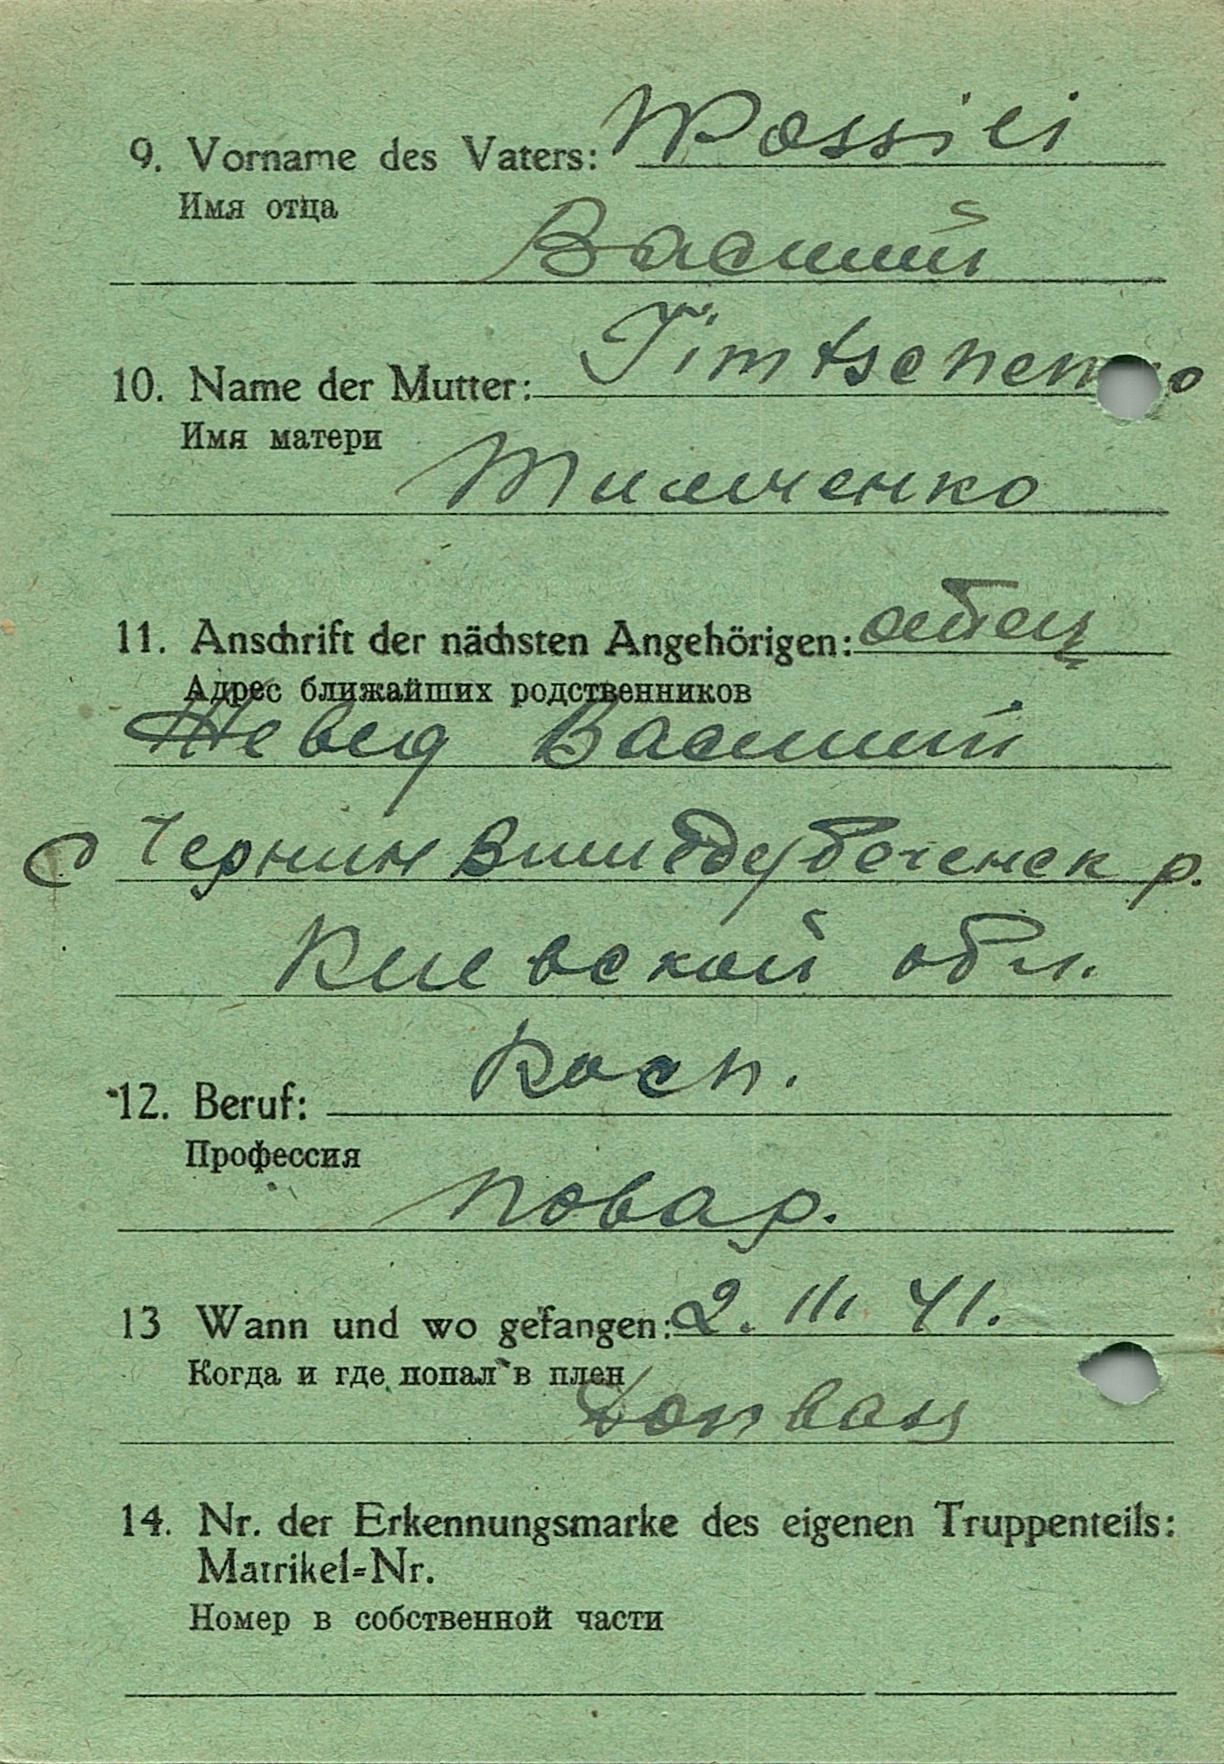 9. Vorname des Vaters: Wassili
Имя отца
Василий
10. Name der Mutter: Timtschenko
Имя матери
Тимченко
11. Anschrift der nächsten Angehörigen: отец
Адрес ближайших родственников
Василий
с Чернин р.
Киевской обл.
12. Beruf: Koch.
Профессия
повар.
13 Wann und wo gefangen: 2. III 41.
Когда и где попал в плен
Donbass
14. Nr. der Erkennungsmarke des eigenen Truppenteils:
Matrikel=Nr.
Номер в собственной части